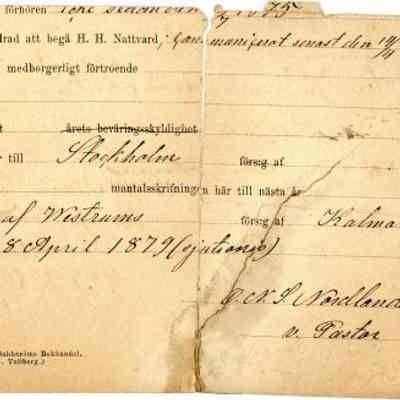 förhören icke sedan den 1875
drad att begå H. H. Nattvard, kommunicerat senast den 10/4
medborgerligt förtroende
t årets beväringsskyldighet
r till Stockholm förs:g af
mantalsskrifningen här till nästa år
af Westrums förs:g af Kalma
8 April 1879 (sjutionio)
Nordland
v. Pastor
Bokhandel,
Vallberg.)